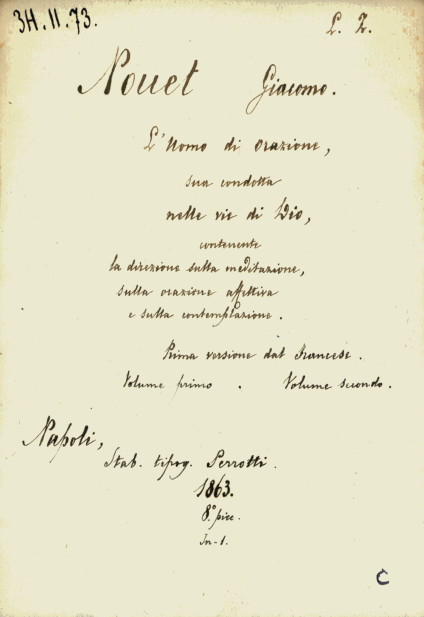 3H.II.73.
L. Z.
Nouet Giacomo.
L'Uomo di orazione,
sua condotta
nelle vie di Dio,
contenente
la direzione sulla meditazione,
sulla orazione affettiva
e sulla contemplazione.
Prima versione dal Francese.
Volume primo. Volume secondo.
Napoli,
Stab. tipog. Perrotti.
1863.
8.° picc.
In-1.
C